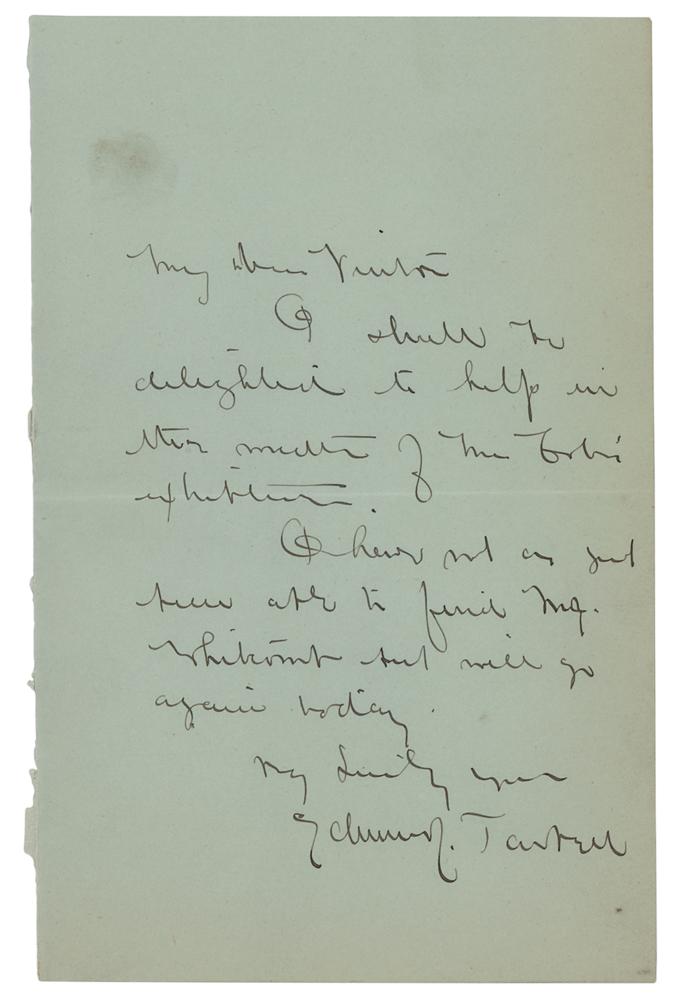 My dear Vinton
I shall be
delighted to help in
the matter of the
exhibition.
I have not as yet
been able to find Mr.
Whitcomb but will go
again today.
Very Sincerely yours
Edmund C. Tarbell